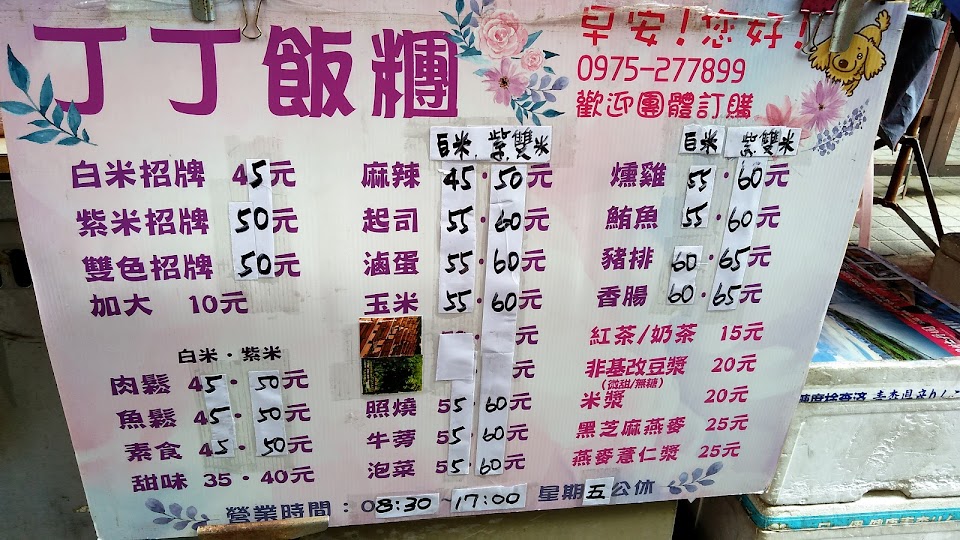 丁丁飯糰
早安!您好!
0975-277899
歡迎團體訂購
白米招牌 45元
紫米招牌 50元
雙色招牌 50元
加大 10元
白米·紫米
肉鬆 45·50元
魚鬆 45·50元
素食 45·50元
甜味 35·40元
白米、紫雙米
麻辣 45·50元
起司 55·60元
滷蛋 55·60元
玉米 55·60元
元
元
照燒 55·60元
牛蒡 55·60元
泡菜 55·60元
白米 紫雙米
燻雞 55·60元
鮪魚 55·60元
豬排 60·65元
香腸 60·65元
紅茶/奶茶 15元
非基改豆漿 20元
(微甜/無糖)
米漿 20元
黑芝麻燕麥 25元
燕麥薏仁漿 25元
營業時間:08:30~17:00 星期五公休